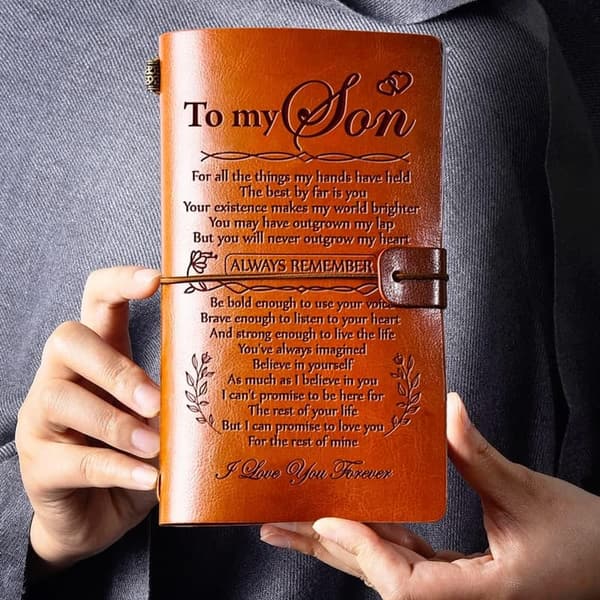 To my Son
For all the things my hands have held
The best by far is you
Your existence makes my world brighter
You may have outgrown my lap
But you will never outgrow my heart
ALWAYS REMEMBER
Be bold enough to use your voice
Brave enough to listen to your heart
And strong enough to live the life
You've always imagined
Believe in yourself
As much as I believe in you
I can't promise to be here for
The rest of your life
But I can promise to love you
For the rest of mine
I Love You Forever